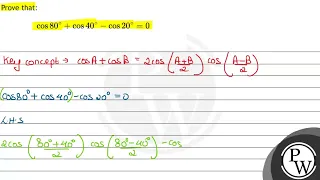 Prove that:
cos 80° + cos 40° − cos 20° = 0
Key concept → cosA + cosB = 2cos(A+B/2) cos(A−B/2)
(cos80° + cos40°) − cos 20° = 0
LHS
2cos(80°+40°/2) cos(80°−40°/2) − cos
PW